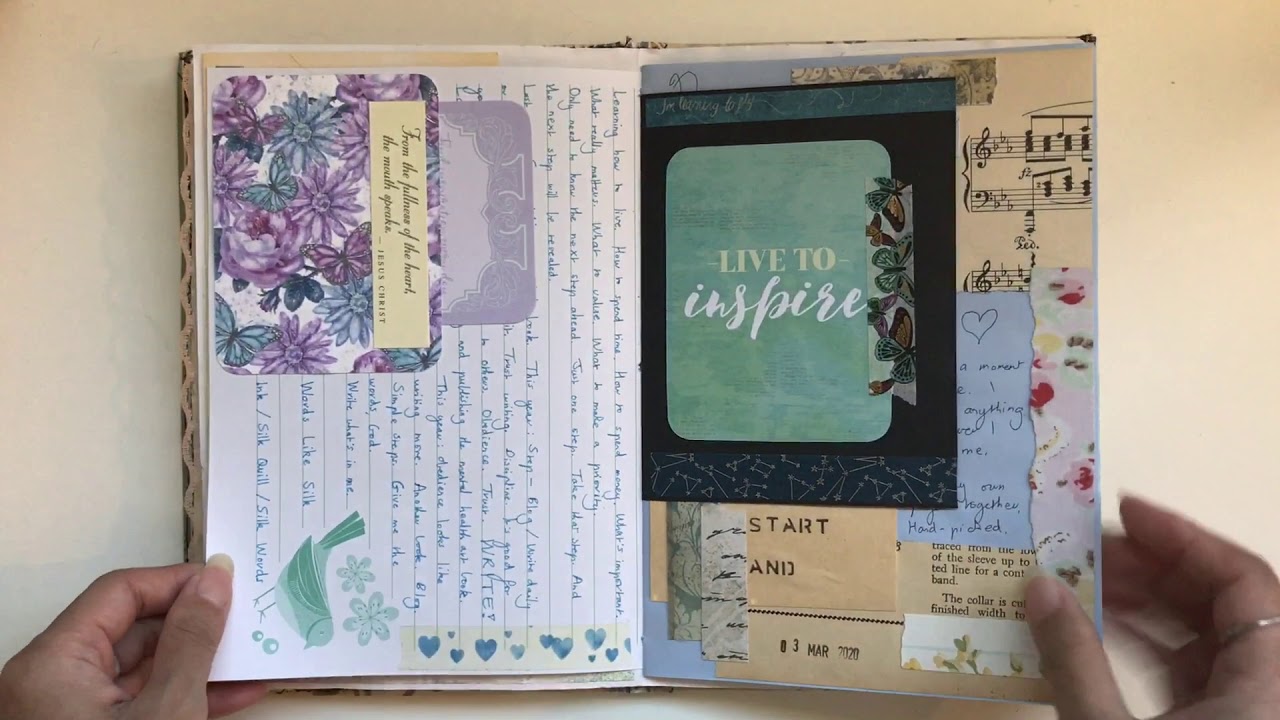 From the fullness of the heart,
the mouth speaks.
— JESUS CHRIST
Learning how to live. How to spend time. How to spend money. What's important.
What really matters. What to value. What to make a priority.
Only need to know the next step ahead. Just one step. Take that step. And
the next step will be revealed.
Last look. This year: Step – Blog / Write daily
it. Trust writing. Discipline. It's good for
to others. Obedience. Trust. WRITE!
and publishing the mental health art book.
This year: obedience looks like
writing more. Another look. Blog
Simple steps. Give me the
words, God.
Write what's in me.
Words Like Silk
Ink / Silk Quill / Silk Words
I'm learning to fly
LIVE TO
inspire
fz
Ped.
a moment
e. I
anything
over I
me.
my own
together,
Hand-picked.
START
AND
traced from the low
of the sleeve up to
ted line for a cont
band.
The collar is cut
finished width to
03 MAR 2020